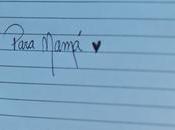 Para Mamá ♥